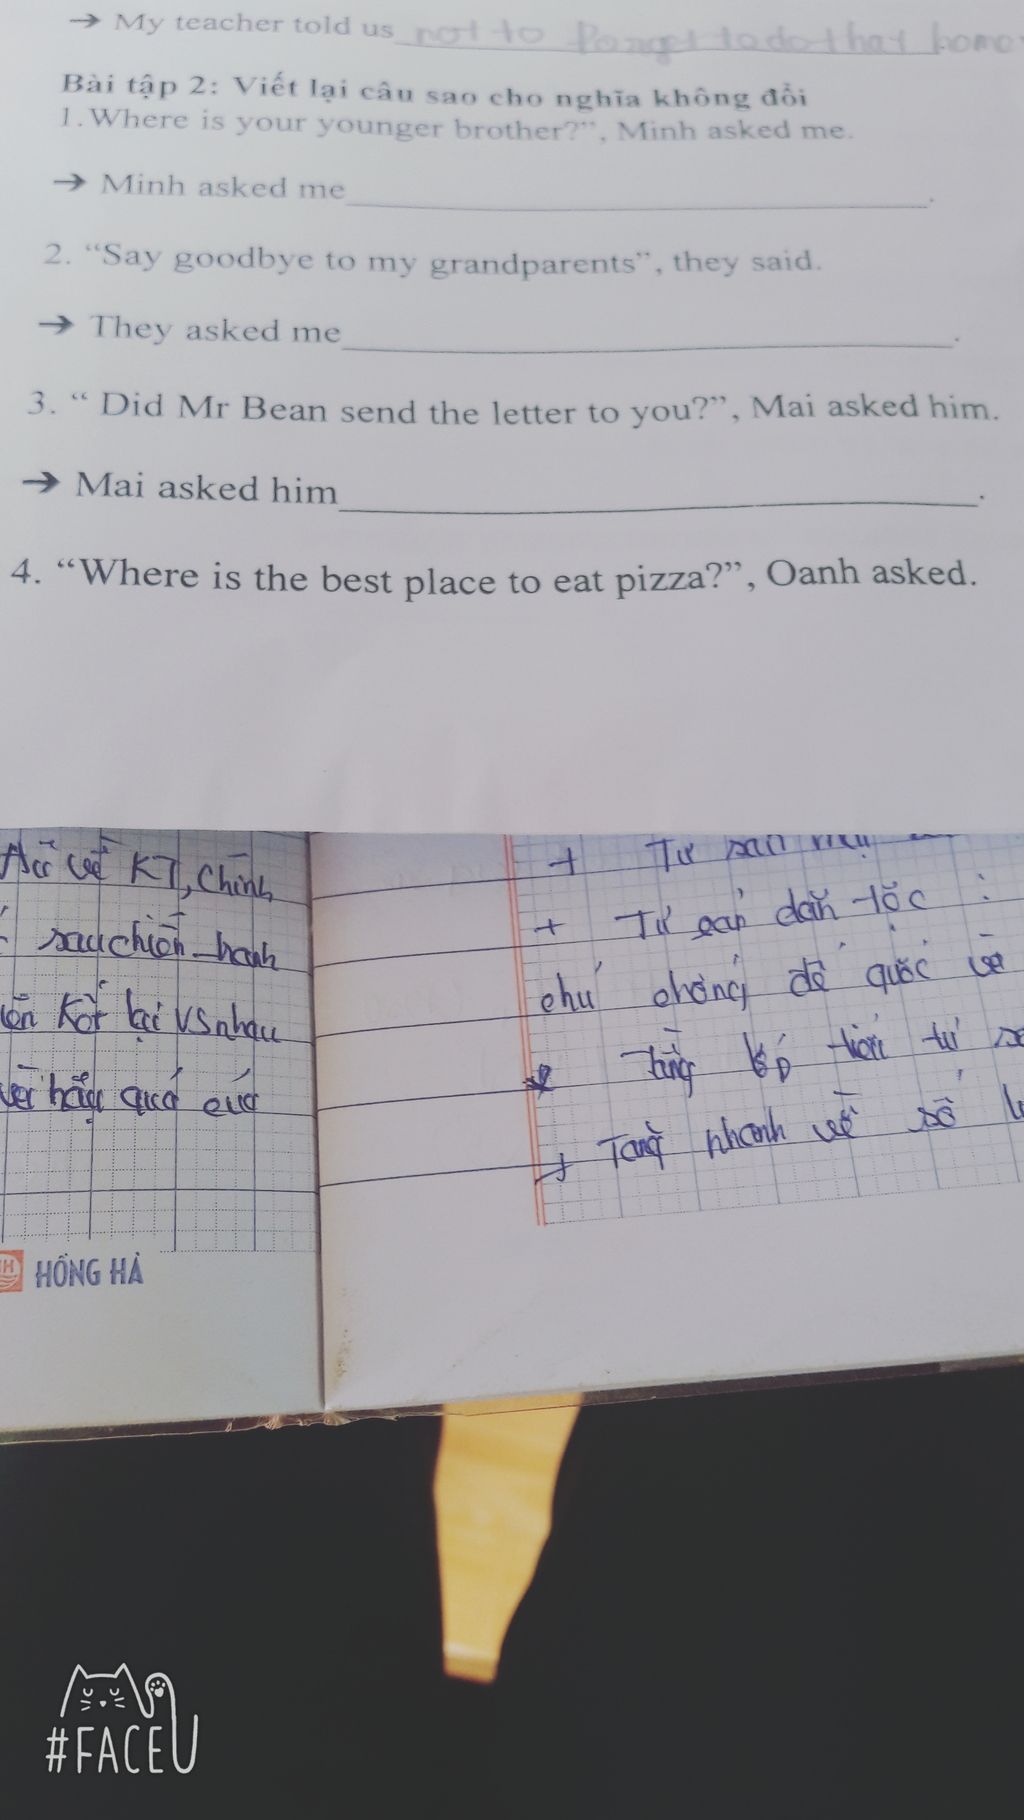 → My teacher told us not to forget to do that home
Bài tập 2: Viết lại câu sao cho nghĩa không đổi
1. Where is your younger brother?", Minh asked me.
→ Minh asked me.
2. "Say goodbye to my grandparents", they said.
→ They asked me.
3. " Did Mr Bean send the letter to you?", Mai asked him.
→ Mai asked him.
4. "Where is the best place to eat pizza?", Oanh asked.
về KT, Chính
sau chiến tranh
kết lại vs nhau
hậu quả
+ Tư sản
+ Tư sản dân tộc :
chủ chống đế quốc
Tầng lớp tiểu tư
+ Tăng nhanh về số
HỒNG HÀ
#FACEU